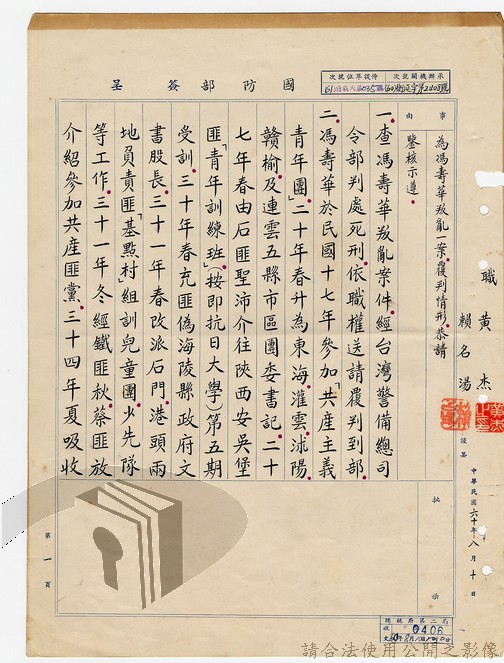 國防部簽呈
承辦機關號次
侍從單位號次
事由
為馮壽華叛亂一案,覆判情形,恭請
鑒核示遵。
職黃杰
賴名湯
謹簽
中華民國六十年八月十日
一、查馮壽華叛亂案件,經台灣警備總司
令部判處死刑,依職權送請覆判到部。
二、馮壽華於民國十七年參加「共產主義
青年團」二十年春升為東海、灌雲、沭陽、
贛榆、及連雲五縣市區團委書記。二十
七年春由石匪聖沛介往陝西安吳堡
匪「青年訓練班」(按即抗日大學)第五期
受訓。三十年春充匪偽海陵縣政府文
書股長。三十一年春改派石門、港頭兩
地負責匪「基點村」組訓兒童團、少先隊
等工作。三十一年冬經鐵匪秋、蔡匪放
介紹參加共產匪黨。三十四年夏吸收
批示
第一頁
總統府第二局
0406
請合法使用公開之影像